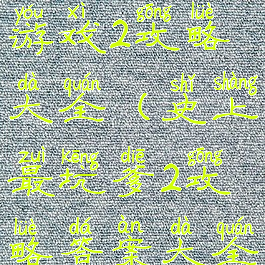 yóu xì gōng lüè
游戏2攻略
dà quán shǐ shàng
大全(史上
zuì kēng diē gōng
最坑爹2攻
lüè dá àn dà quán
略答案大全